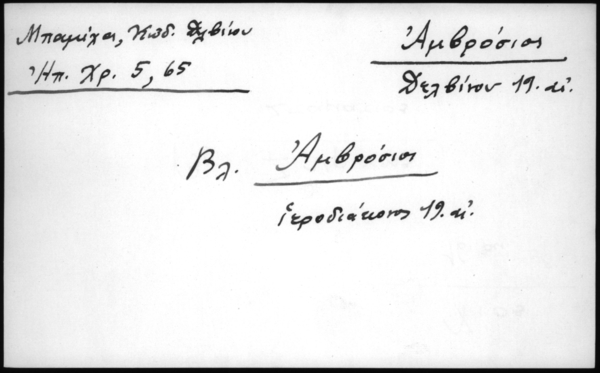 Μπαμίχα, Κώδ. Δελβίνου
Ἠπ. Χρ. 5, 65
Ἀμβρόσιος
Δελβίνου 19. αἰ.
Βλ. Ἀμβρόσιος
ἱεροδιάκονος 19. αἰ.